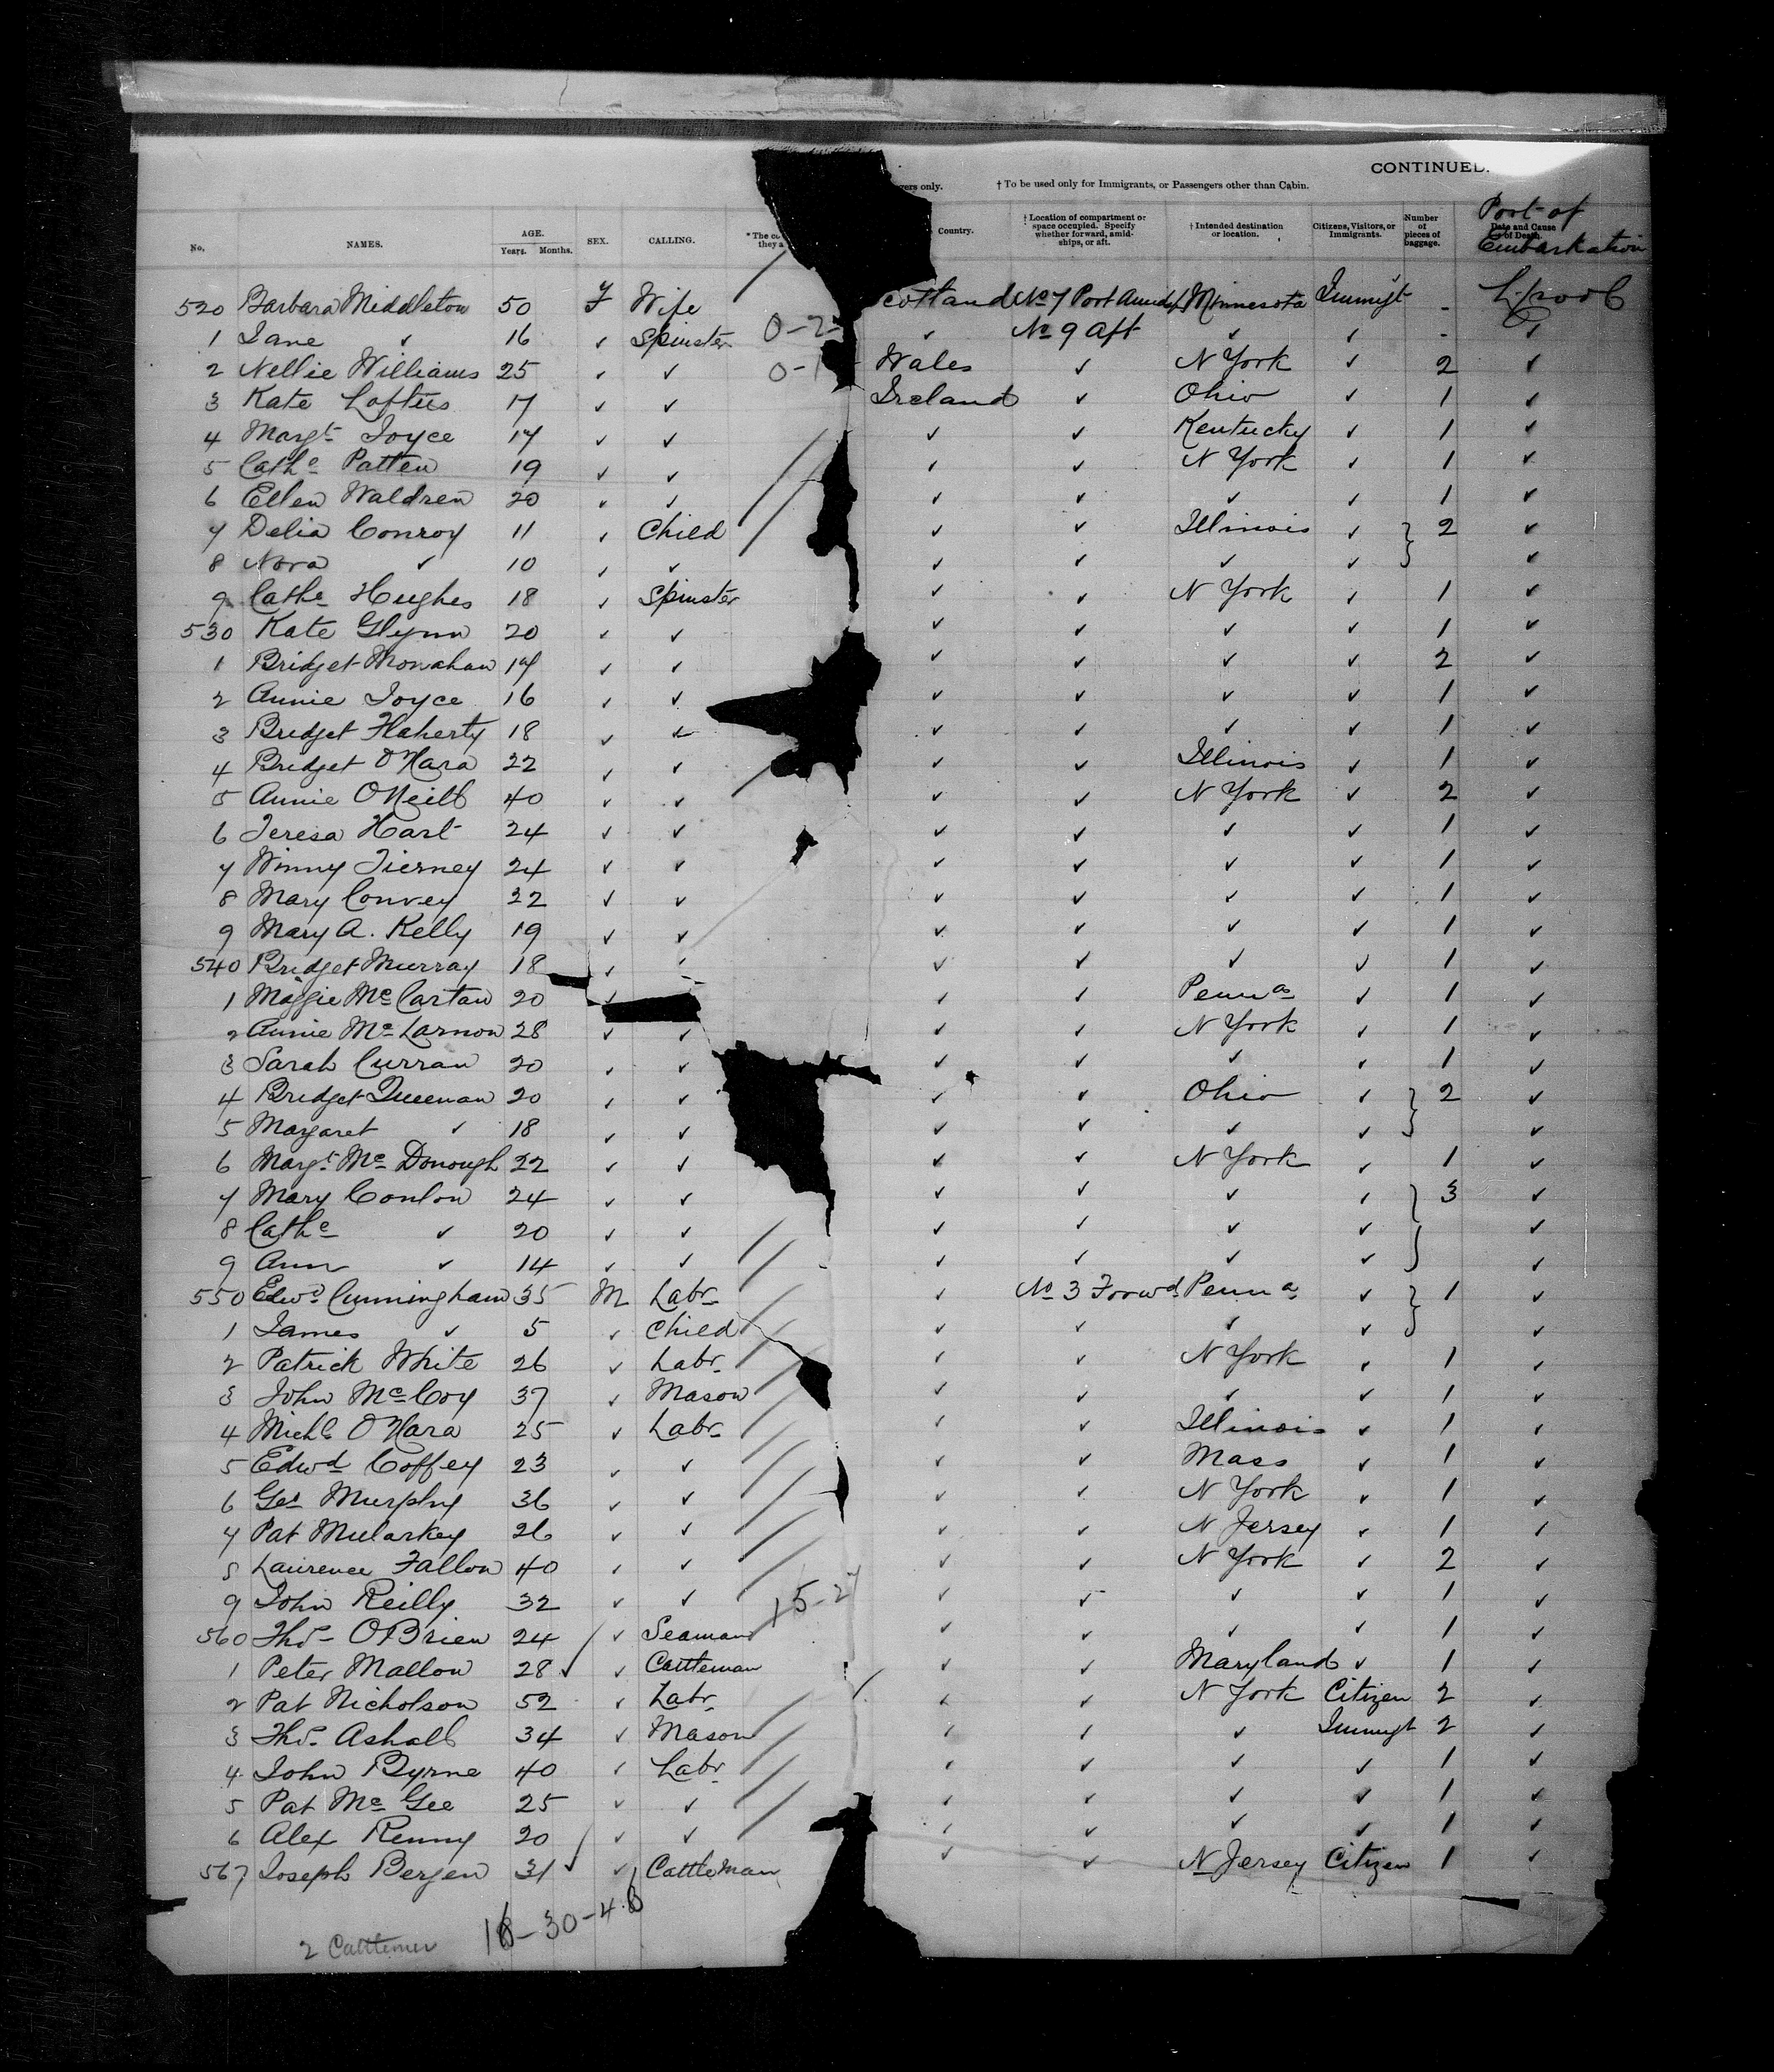 CONTINUED.
gers only. † To be used only for Immigrants, or Passengers other than Cabin.
No. NAMES. AGE. Years. Months. SEX. CALLING. * The co they a Country. † Location of compartment or space occupied. Specify whether forward, amidships, or aft. † Intended destination or location. Citizens, Visitors, or Immigrants. Number of pieces of baggage. Date and Cause of Death. Port of Embarkation
520 Barbara Middleton 50 F Wife cotland No 7 Port Minnesota Immigt - L'pool
1 Jane ✓ 16 ✓ Spinster 0-2- ✓ No 9 Aft ✓ ✓ - ✓
2 Nellie Williams 25 ✓ ✓ 0-1 Wales ✓ N York ✓ 2 ✓
3 Kate Loftus 17 ✓ ✓ Ireland ✓ Ohio ✓ 1 ✓
4 Margt Joyce 17 ✓ ✓ ✓ ✓ Kentucky ✓ 1 ✓
5 Cathe Patten 19 ✓ ✓ ✓ ✓ N York ✓ 1 ✓
6 Ellen Waldren 20 ✓ ✓ ✓ ✓ ✓ ✓ 1 ✓
7 Delia Conroy 11 ✓ Child ✓ ✓ Illinois ✓ } 2 ✓
8 Nora ✓ 10 ✓ ✓ ✓ ✓ ✓ ✓ ✓
9 Cathe Hughes 18 ✓ Spinster ✓ ✓ N York ✓ 1 ✓
530 Kate Glynn 20 ✓ ✓ ✓ ✓ ✓ ✓ 1 ✓
1 Bridget Monahan 17 ✓ ✓ ✓ ✓ ✓ ✓ 2 ✓
2 Annie Joyce 16 ✓ ✓ ✓ ✓ ✓ ✓ 1 ✓
3 Bridget Flaherty 18 ✓ ✓ ✓ ✓ ✓ ✓ 1 ✓
4 Bridget O'Hara 22 ✓ ✓ ✓ ✓ Illinois ✓ 1 ✓
5 Annie O'Neill 40 ✓ ✓ ✓ ✓ N York ✓ 2 ✓
6 Teresa Hart 24 ✓ ✓ ✓ ✓ ✓ ✓ 1 ✓
7 Winny Tierney 24 ✓ ✓ ✓ ✓ ✓ ✓ 1 ✓
8 Mary Convey 22 ✓ ✓ ✓ ✓ ✓ ✓ 1 ✓
9 Mary A. Kelly 19 ✓ ✓ ✓ ✓ ✓ ✓ 1 ✓
540 Bridget Murray 18 ✓ ✓ ✓ ✓ ✓ ✓ 1 ✓
1 Maggie McCartan 20 ✓ ✓ ✓ Penna ✓ 1 ✓
2 Annie McLarnon 28 ✓ ✓ ✓ ✓ N York ✓ 1 ✓
3 Sarah Curran 20 ✓ ✓ ✓ ✓ ✓ ✓ 1 ✓
4 Bridget Queenan 20 ✓ ✓ ✓ ✓ Ohio ✓ } 2 ✓
5 Margaret ✓ 18 ✓ ✓ ✓ ✓ ✓ ✓ ✓
6 Margt McDonough 22 ✓ ✓ ✓ ✓ N York ✓ 1 ✓
7 Mary Conlon 24 ✓ ✓ ✓ ✓ ✓ ✓ } 3 ✓
8 Cathe ✓ 20 ✓ ✓ ✓ ✓ ✓ ✓ ✓
9 Ann ✓ 14 ✓ ✓ ✓ ✓ ✓ ✓ ✓
550 Edwd Cunningham 35 M Labr ✓ No 3 Forwd Penna ✓ } 1 ✓
1 James ✓ 5 ✓ Child ✓ ✓ ✓ ✓ ✓
2 Patrick White 26 ✓ Labr ✓ ✓ N York ✓ 1 ✓
3 John McCoy 37 ✓ Mason ✓ ✓ ✓ ✓ 1 ✓
4 Michl O'Hara 25 ✓ Labr ✓ ✓ Illinois ✓ 1 ✓
5 Edwd Coffey 23 ✓ ✓ ✓ ✓ Mass ✓ 1 ✓
6 Geo Murphy 36 ✓ ✓ ✓ ✓ N York ✓ 1 ✓
7 Pat Mularkey 26 ✓ ✓ ✓ ✓ N Jersey ✓ 1 ✓
8 Laurence Fallon 40 ✓ ✓ ✓ ✓ N York ✓ 2 ✓
9 John Reilly 32 ✓ ✓ 15-27 ✓ ✓ ✓ ✓ 1 ✓
560 Thos O'Brien 24 ✓ Seaman ✓ ✓ ✓ ✓ 1 ✓
1 Peter Mallon 28 ✓ ✓ Cattleman ✓ ✓ Maryland ✓ 1 ✓
2 Pat Nicholson 52 ✓ Labr ✓ ✓ N York Citizen 2 ✓
3 Thos Ashall 34 ✓ Mason ✓ ✓ ✓ Immigt 2 ✓
4 John Byrne 40 ✓ Labr ✓ ✓ ✓ ✓ 1 ✓
5 Pat McGee 25 ✓ ✓ ✓ ✓ ✓ ✓ 1 ✓
6 Alex Renny 20 ✓ ✓ ✓ ✓ ✓ ✓ 1 ✓
567 Joseph Bergen 31 ✓ ✓ Cattleman ✓ ✓ N Jersey Citizen 1 ✓
2 Cattlemen 18-30-48